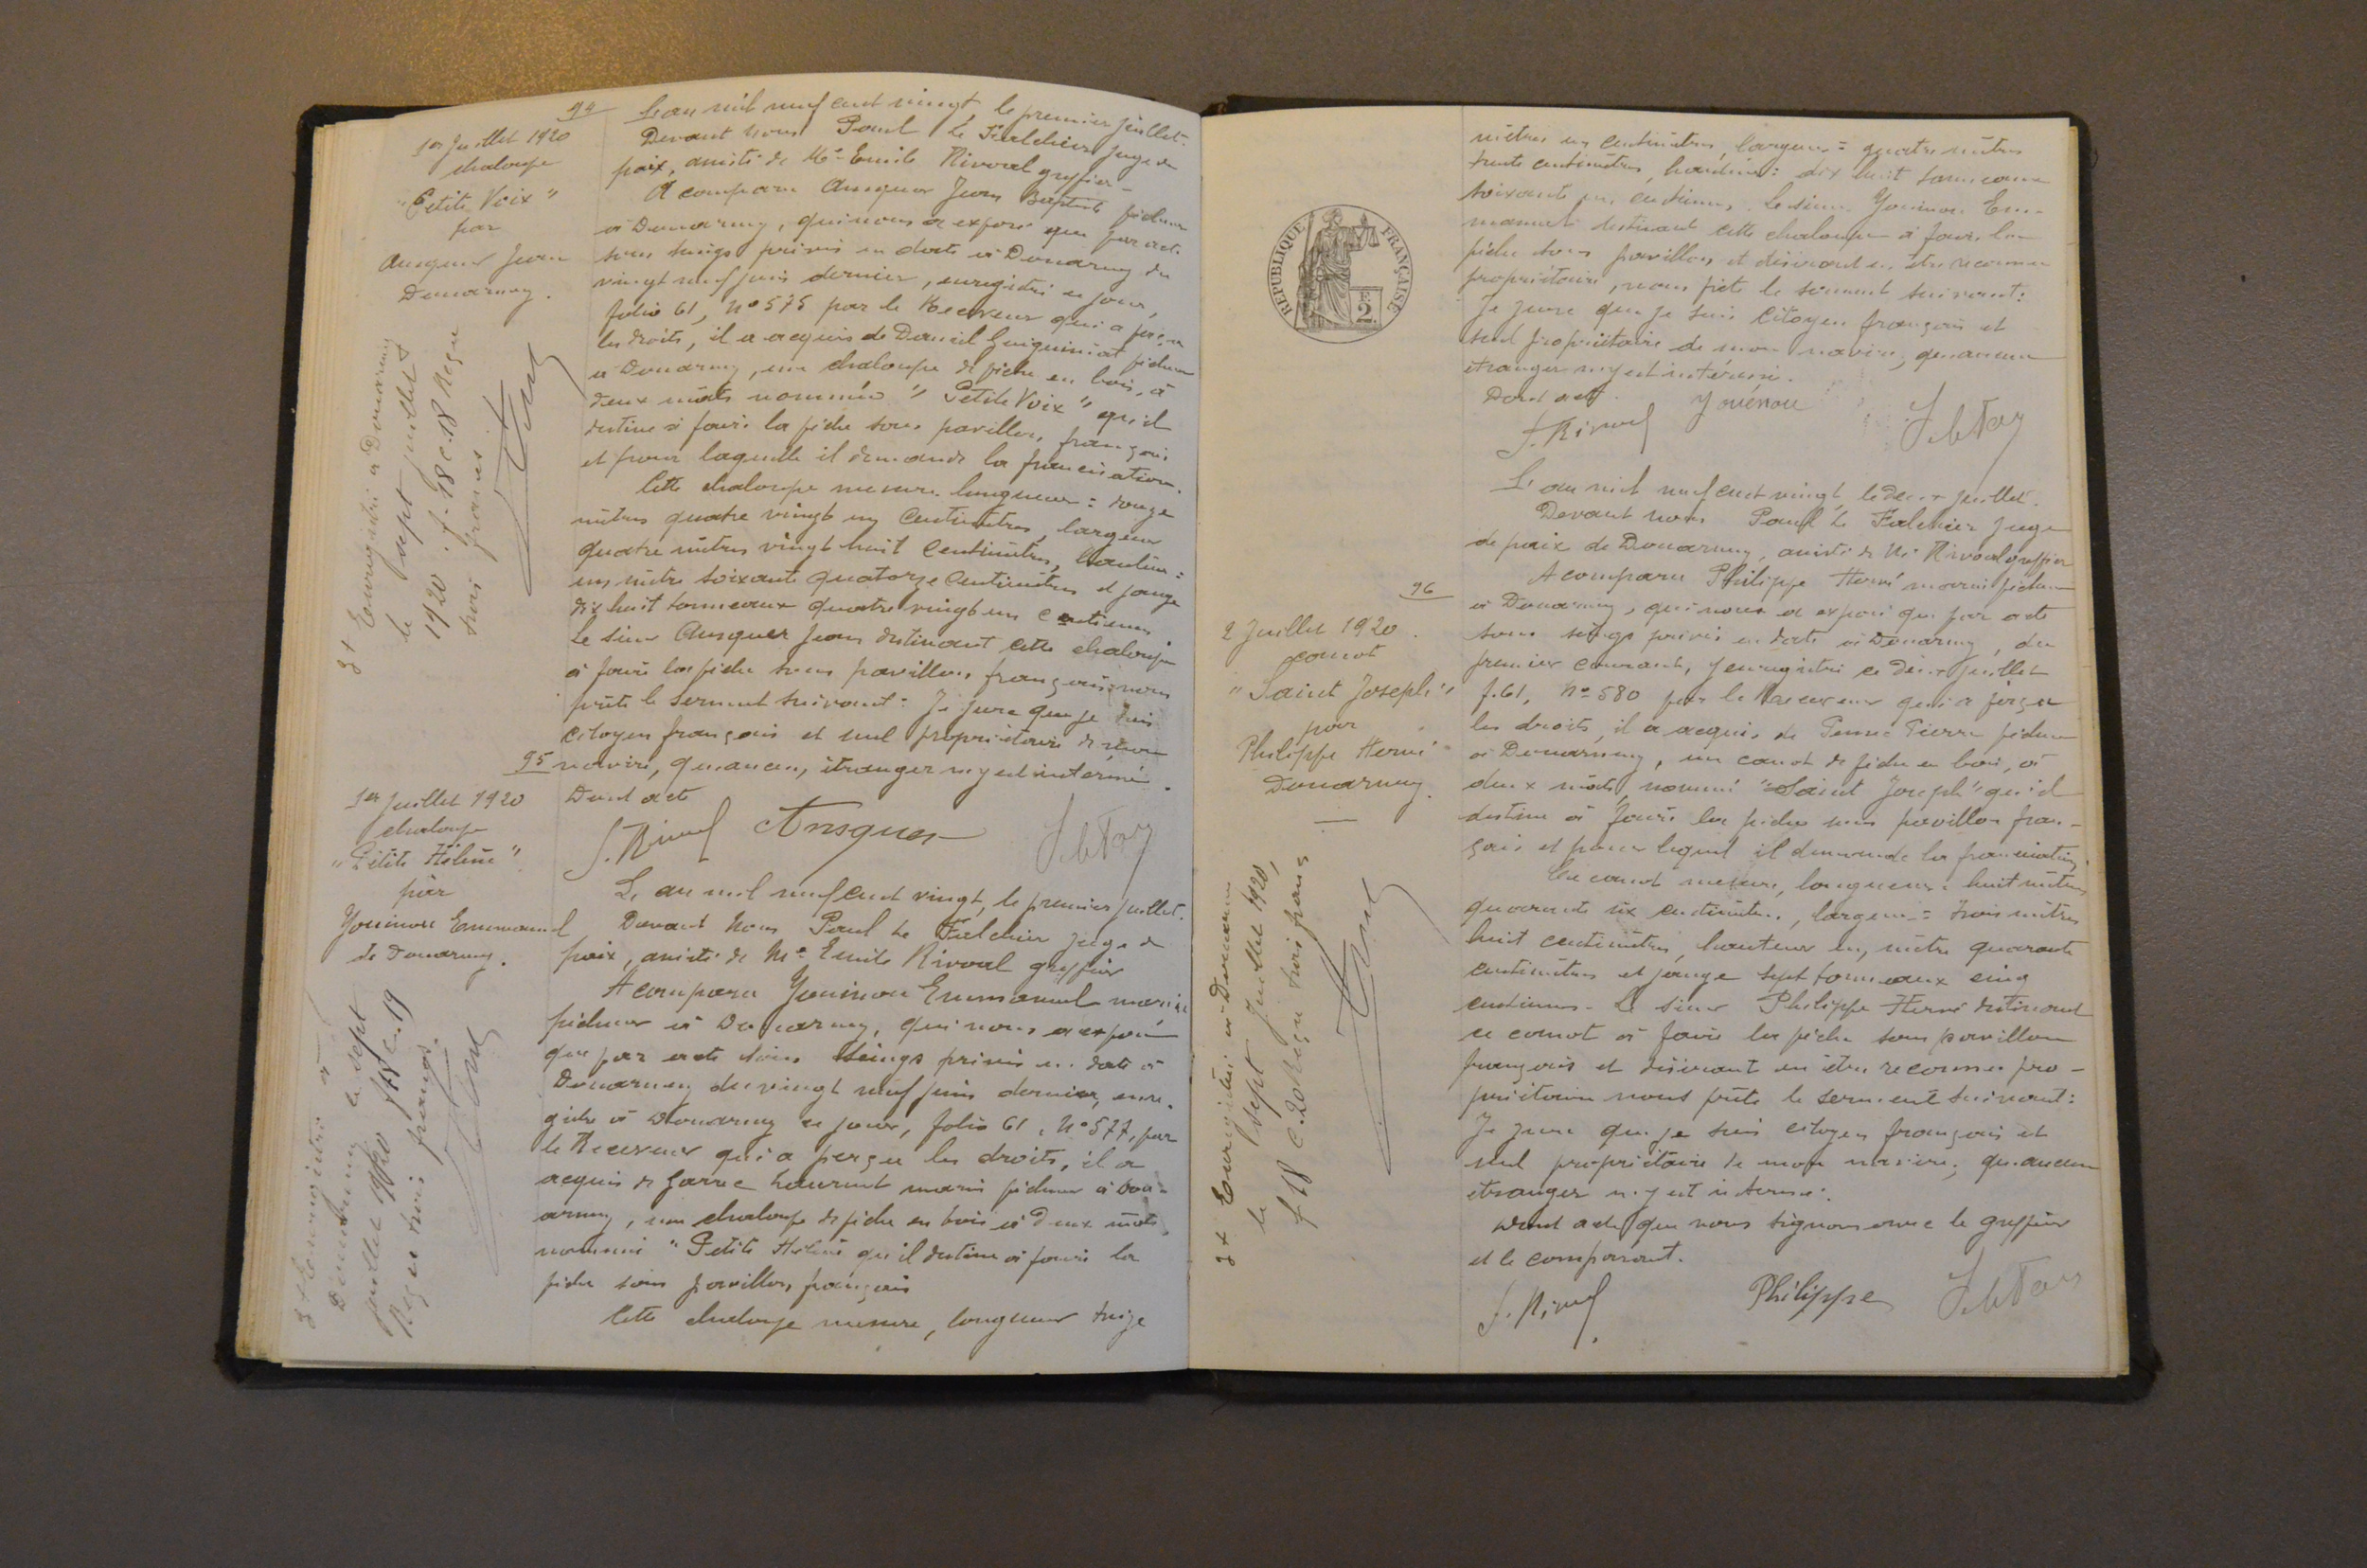 94
1er Juillet 1920
chaloupe
"Petite Voix"
par
Ansquer Jean
Douarnenez.
3 f Enregistré à Douarnenez
le sept juillet
1920. f. 18 c. 18 Reçu
trois francs.
L'an mil neuf cent vingt, le premier juillet.
Devant nous Paul Le Falchier juge de
paix, assisté de Me Emile Rivoal greffier -
A comparu Ansquer Jean Baptiste pêcheur
à Douarnenez, qui nous a exposé que par acte
sous seings privés en date à Douarnenez du
vingt neuf juin dernier, enregistré ce jour,
folio 61, No 575 par le Receveur qui a perçu
les droits, il a acquis de Daniel Guiquiniat pêcheur
à Douarnenez, une chaloupe de pêche en bois, à
deux mâts nommée "Petite Voix" qu'il
destine à faire la pêche sous pavillon français
et pour laquelle il demande la francisation.
Cette chaloupe mesure longueur: douze
mètres quatre vingt un centimètres, largeur
quatre mètres vingt huit centimètres, hauteur:
un mètre soixante quatorze centimètres et jauge
dix huit tonneaux quatre vingt un centièmes
Le sieur Ansquer Jean destinant cette chaloupe
à faire la pêche sous pavillon français nous
prête le serment suivant: Je jure que je suis
citoyen français et seul propriétaire de mon
navire, qu'aucun étranger n'y est intéressé.
Dont acte
Ansquer
95
1er Juillet 1920
chaloupe
"Petite Hélène"
par
Youinou Emmanuel
de Douarnenez.
3 f Enregistré à
Douarnenez le sept
juillet 1920 f 18 c. 19
Reçu trois francs.
L'an mil neuf cent vingt, le premier juillet.
Devant Nous Paul Le Falchier juge de
paix, assisté de Me Emile Rivoal greffier
A comparu Youinou Emmanuel marin
pêcheur à Douarnenez, qui nous a exposé
que par acte sous seings privés en date à
Douarnenez du vingt neuf juin dernier, enre-
gistré à Douarnenez ce jour, folio 61, No 577, par
le Receveur qui a perçu les droits, il a
acquis de Garrec Laurent marin pêcheur à Dou-
arnenez, une chaloupe de pêche en bois à deux mâts
nommée "Petite Hélène" qu'il destine à faire la
pêche sous pavillon français
Cette chaloupe mesure, longueur treize
RÉPUBLIQUE FRANÇAISE
F.
2.
mètres un centimètres, largeur: quatre mètres
trente centimètres, hauteur: dix huit tonneaux
soixante un centièmes. Le sieur Youinou Em-
manuel destinant cette chaloupe à faire la
pêche sous pavillon et désirant en être reconnu
propriétaire, nous prête le serment suivant:
Je jure que je suis citoyen français et
seul propriétaire de mon navire, qu'aucun
étranger n'y est intéressé.
Dont acte.
Youénou
96
2 Juillet 1920.
canot
"Saint Joseph"
par
Philippe Hervé
Douarnenez.
3 f Enregistré à Douarnenez
le sept Juillet 1920,
f 18 c. 20 Reçu trois francs
L'an mil neuf cent vingt, le deux juillet.
Devant nous Paul Le Falchier Juge
de paix de Douarnenez, assisté de Me Rivoal greffier
A comparu Philippe Hervé marin pêcheur
à Douarnenez, qui nous a exposé que par acte
sous seings privés en date à Douarnenez, du
premier courant, enregistré ce deux juillet
f. 61, No 580 par le Receveur qui a perçu
les droits, il a acquis de Pennec Pierre pêcheur
à Douarnenez, un canot de pêche en bois, à
deux mâts, nommé "Saint Joseph" qu'il
destine à faire la pêche sous pavillon fran-
çais et pour lequel il demande la francisation.
Ce canot mesure, longueur: huit mètres
quarante six centimètres, largeur: trois mètres
huit centimètres, hauteur un mètre quarante
centimètres et jauge sept tonneaux cinq
centièmes. Le sieur Philippe Hervé destinant
ce canot à faire la pêche sous pavillon
français et désirant en être reconnu pro-
priétaire nous prête le serment suivant:
Je jure que je suis citoyen français et
seul propriétaire de mon navire, qu'aucun
étranger n'y est intéressé.
Dont acte que nous signons avec le greffier
et le comparant.
Philippe